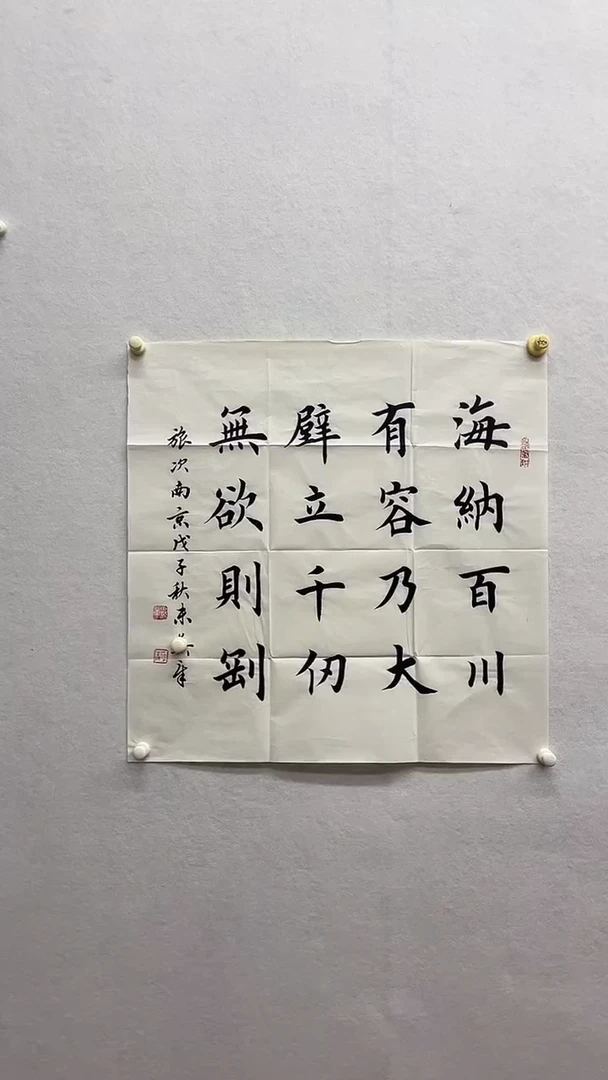 海納百川
有容乃大
壁立千仞
無欲則剛
旅次南京戊子秋